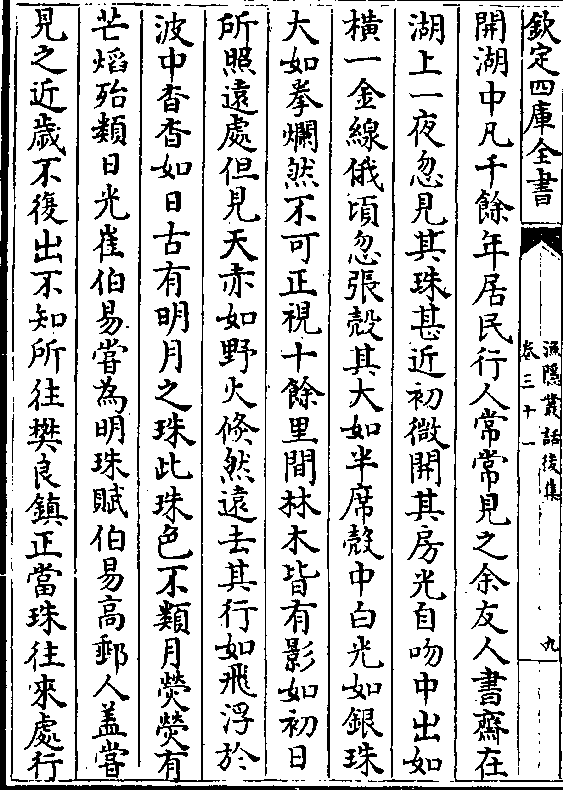 欽定四庫全書
漁隱叢話後集
卷三十一
九
開湖中凡千餘年居民行人常常見之余友人書齋在
湖上一夜忽見其珠甚近初微開其房光自吻中出如
橫一金線俄頃忽張殼其大如半席殼中白光如銀珠
大如拳爛然不可正視十餘里間林木皆有影如初日
所照遠處但見天赤如野火倏然遠去其行如飛浮於
波中杳杳如日古有明月之珠此珠色不類月熒熒有
芒熖殆類日光崔伯易嘗為明珠賦伯易高郵人盖嘗
見之近歲不復出不知所往樊良鎮正當珠往來處行